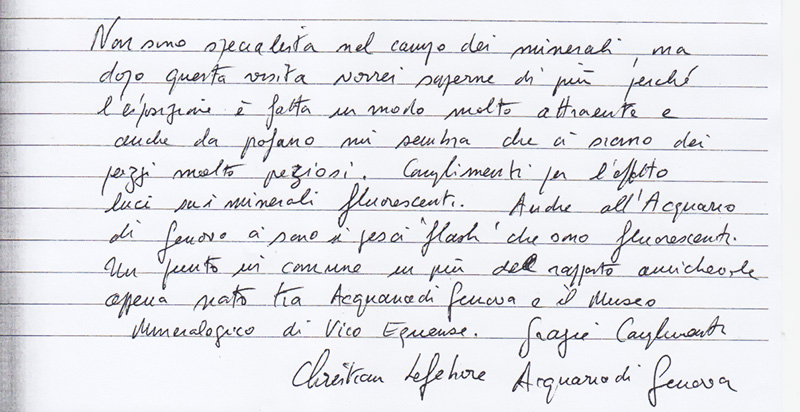 Non sono specialista nel campo dei minerali, ma
dopo questa visita vorrei saperne di più perché
l'esposizione è fatta in modo molto attraente e
anche da profano mi sembra che ci siano dei
pezzi molto preziosi. Complimenti per l'effetto
luci sui minerali fluorescenti. Anche all'Acquario
di Genova ci sono i pesci 'flash' che sono fluorescenti.
Un punto in comune in più del rapporto amichevole
appena nato tra Acquario di Genova e il Museo
Mineralogico di Vico Equense. Grazie Complimenti
Christian Lefebvre Acquario di Genova